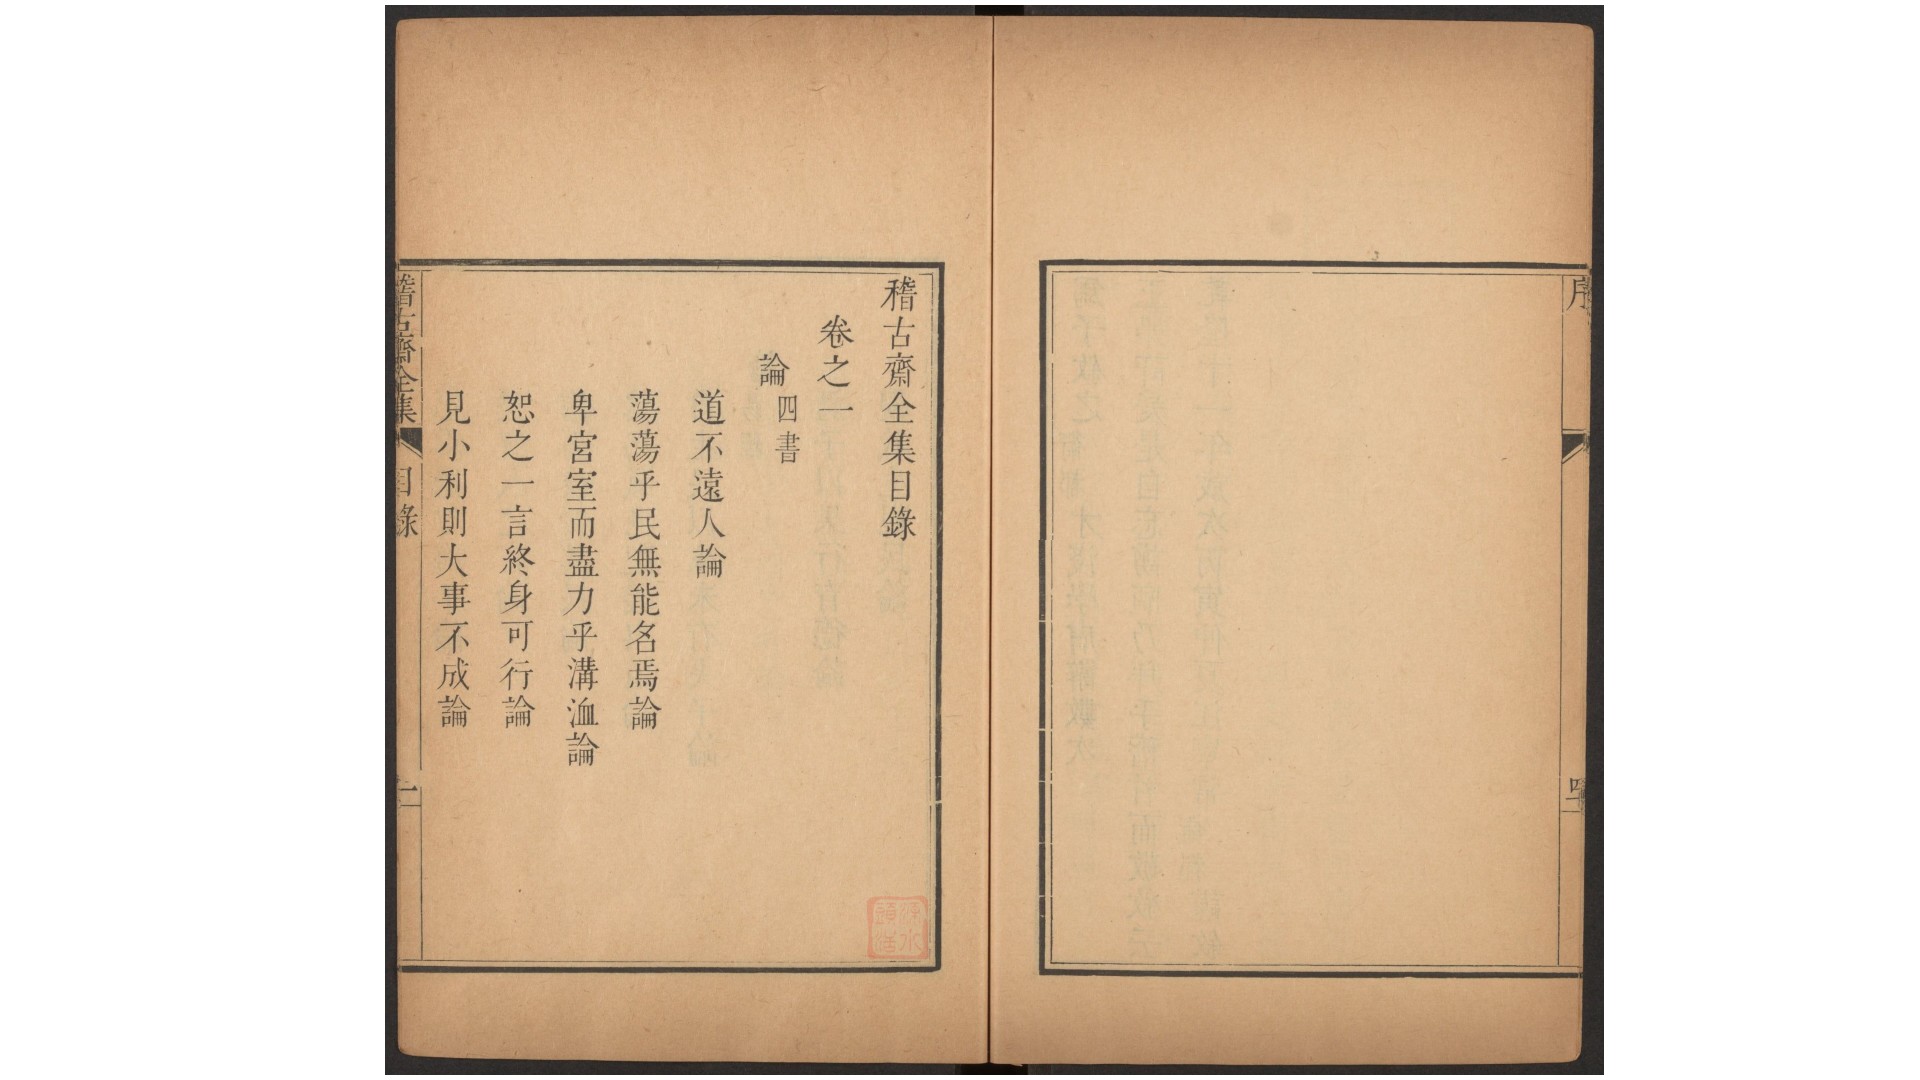 序
稽古齋全集目錄
卷之一
論
四書
道不遠人論
蕩蕩乎民無能名焉論
卑宮室而盡力乎溝洫論
恕之一言終身可行論
見小利則大事不成論
稽古齋全集
目錄
一